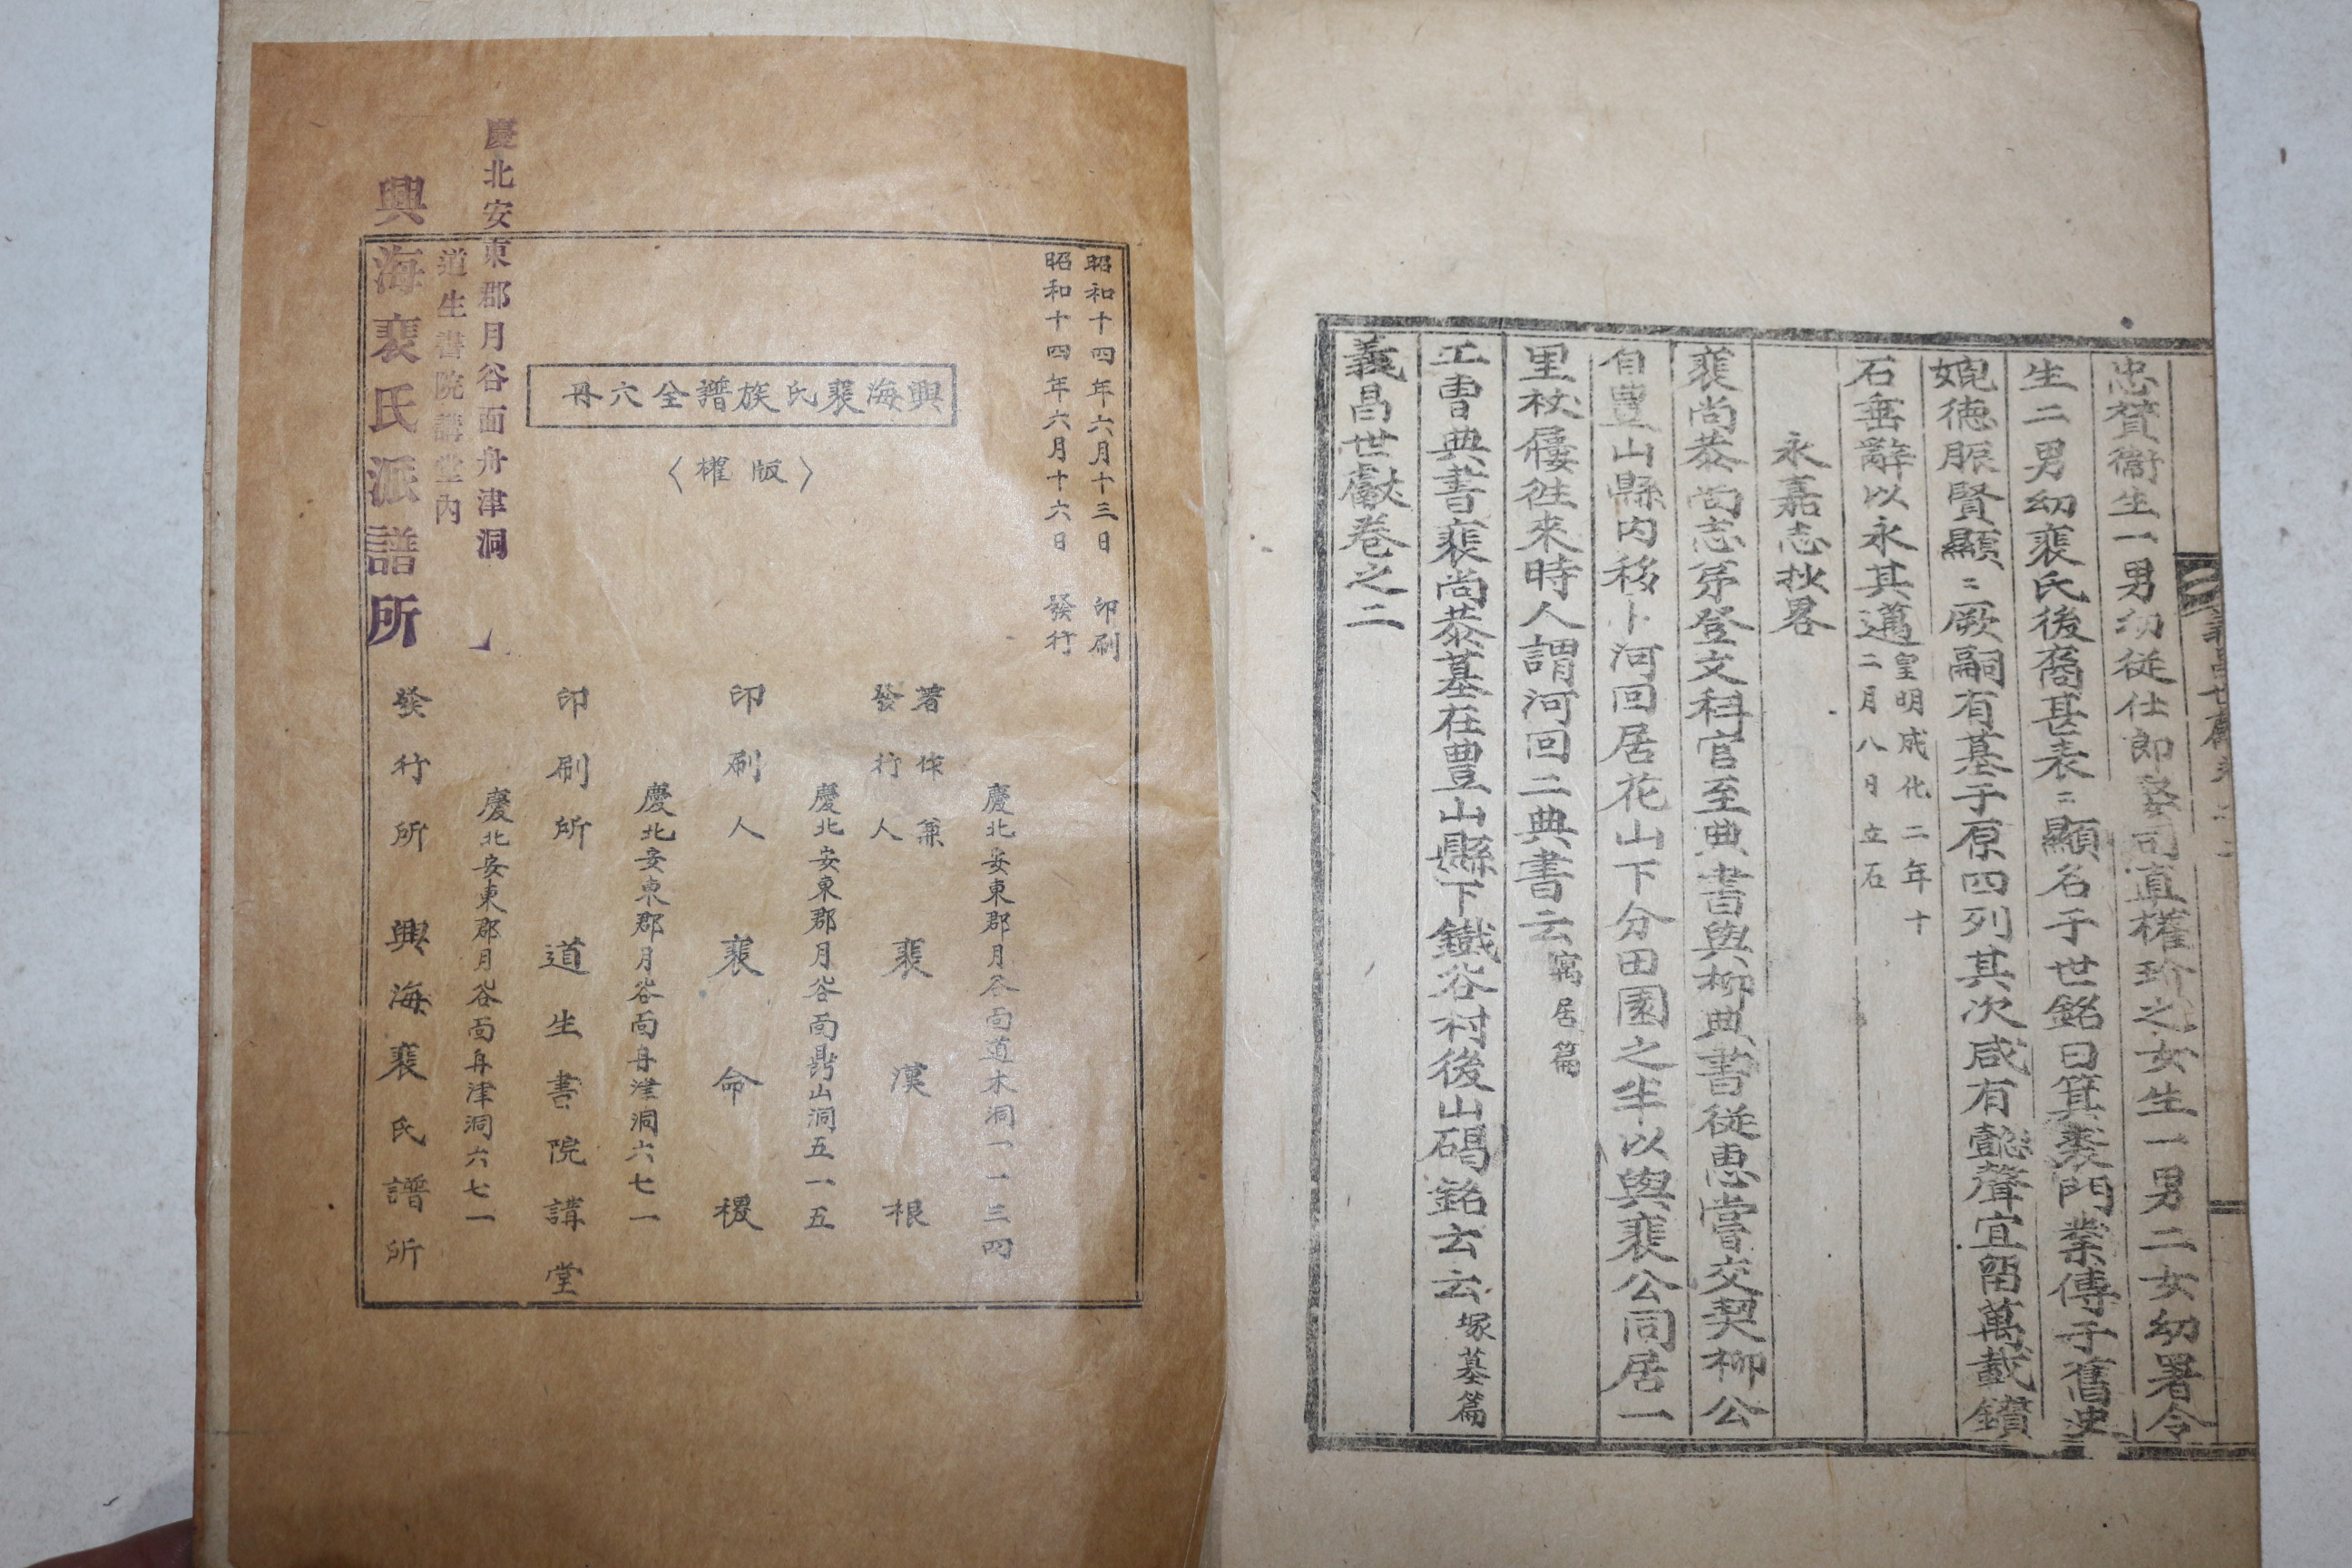 忠贊衞生一男幼從仕郎娶司直權玠之女生一男二女幼署令
生二男幼裵氏後裔甚表〻顯名于世銘曰箕裘門業傳子舊史
媲德脤賢顯〻厥嗣有基于原四列其次咸有懿聲宜留萬載鑽
石垂辭以永其邁皇明成化二年十
二月八日立石
永嘉志抄畧
裵尙恭尙志芽登文科官至典書與柳典書從惠嘗交契柳公
自豊山縣內移卜河回居花山下分田園之半以與裵公同居一
里杖屨徃來時人謂河回二典書云寓居篇
工曺典書裵尙恭墓在豊山縣下鐵谷村後山碣銘云云塚墓篇
義昌世獻卷之二
昭和十四年六月十三日 印刷
昭和十四年六月十六日 發行
興海裵氏族譜全六冊
〈版權〉
慶北安東郡月谷面道木洞一一三四
著作兼
發行人 裵漢根
慶北安東郡月谷面鼎山洞五一五
印刷人 裵命稷
慶北安東郡月谷面舟津洞六七一
印刷所 道生書院講堂
慶北安東郡月谷面舟津洞六七一
發行所 興海裵氏譜所
慶北安東郡月谷面舟津洞
道生書院講堂內
興海裵氏派譜所